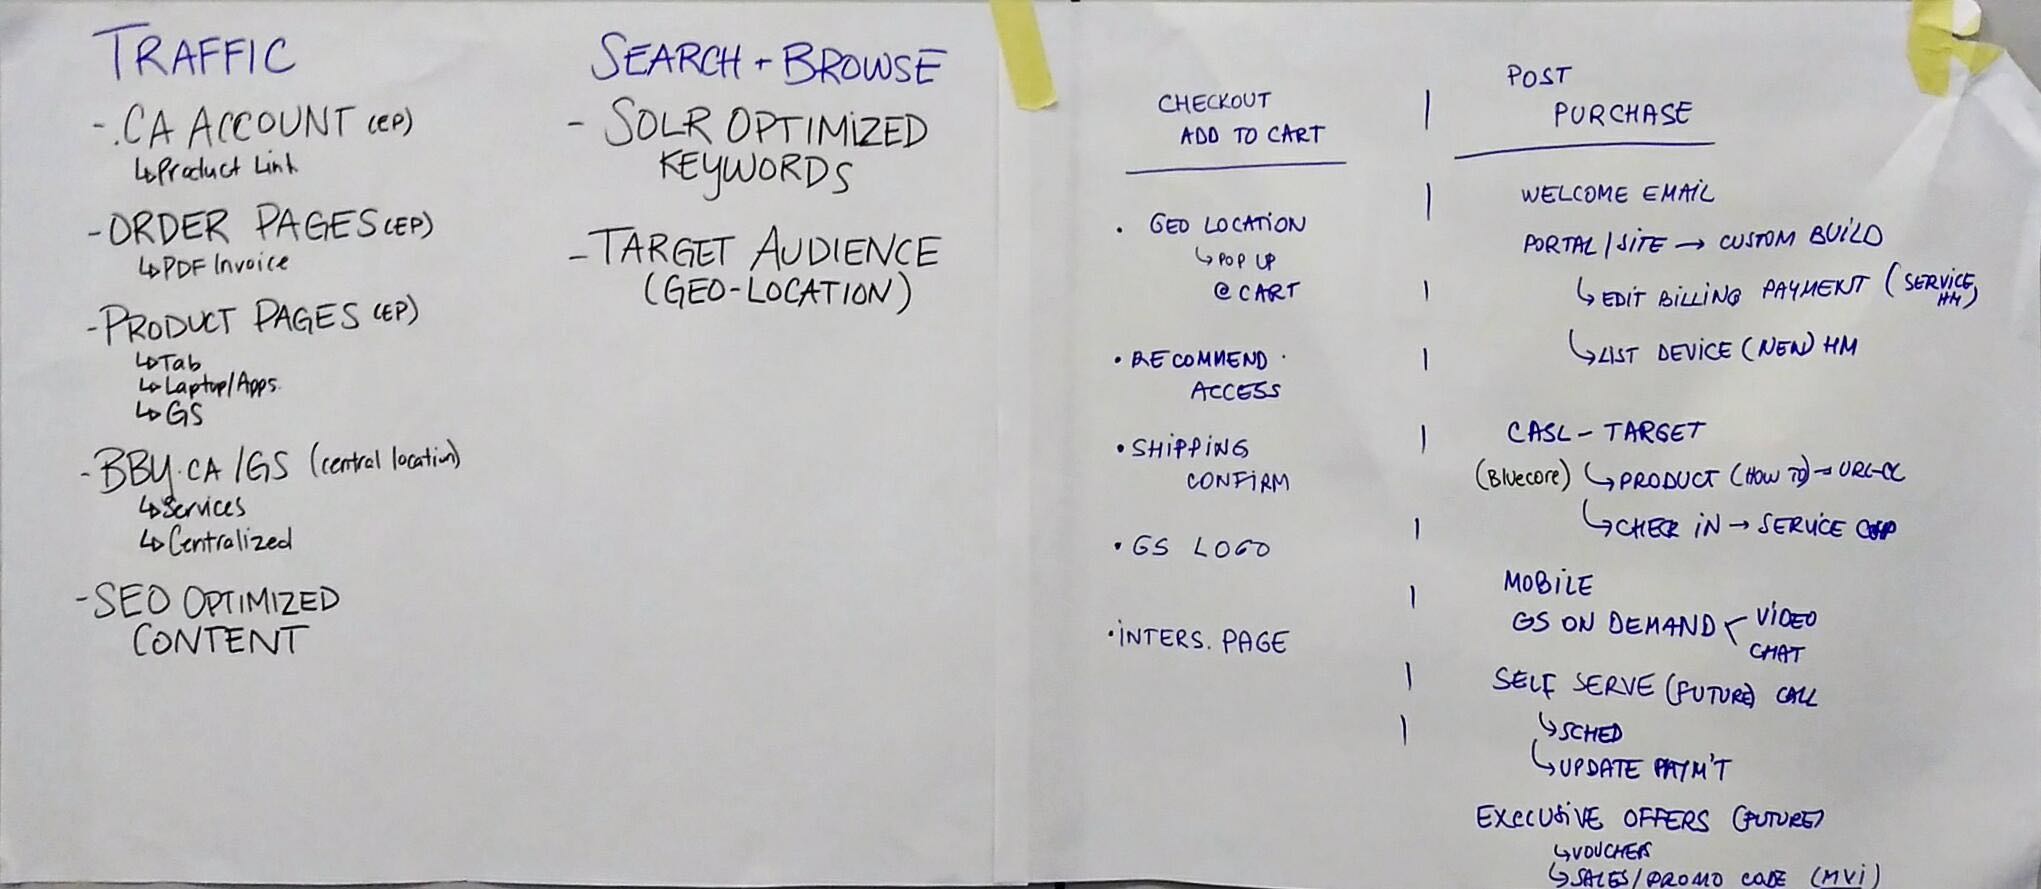 TRAFFIC
- .CA ACCOUNT (EP)
↳Product Link
- ORDER PAGES (EP)
↳PDF Invoice
- PRODUCT PAGES (EP)
↳Tab
↳Laptop/Apps.
↳GS
- BBY.CA/GS (central location)
↳Services
↳Centralized
- SEO OPTIMIZED
CONTENT
SEARCH + BROWSE
- SOLR OPTIMIZED
KEYWORDS
- TARGET AUDIENCE
(GEO-LOCATION)
CHECKOUT
ADD TO CART
• GEO LOCATION
↳POP UP
@ CART
• RECOMMEND.
ACCESS
• SHIPPING
CONFIRM
• GS LOGO
• INTERS. PAGE
POST
PURCHASE
WELCOME EMAIL
PORTAL/SITE → CUSTOM BUILD
↳EDIT BILLING PAYMENT (SERVICE
HM)
↳LIST DEVICE (NEW) HM
CASL - TARGET
(Bluecore) ↳PRODUCT (HOW TO) →
↳CHECK IN → SERVICE
MOBILE
GS ON DEMAND < VIDEO
CHAT
SELF SERVE (FUTURE) CALL
↳SCHED
↳UPDATE PAYM'T
EXECUSIVE OFFERS (FUTURE)
↳VOUCHERS
↳SALES/PROMO CODE (MVI)